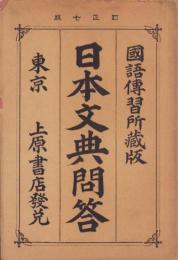 訂正七版
國語傳習所藏版
日本文典問答
東京 上原書店發兌